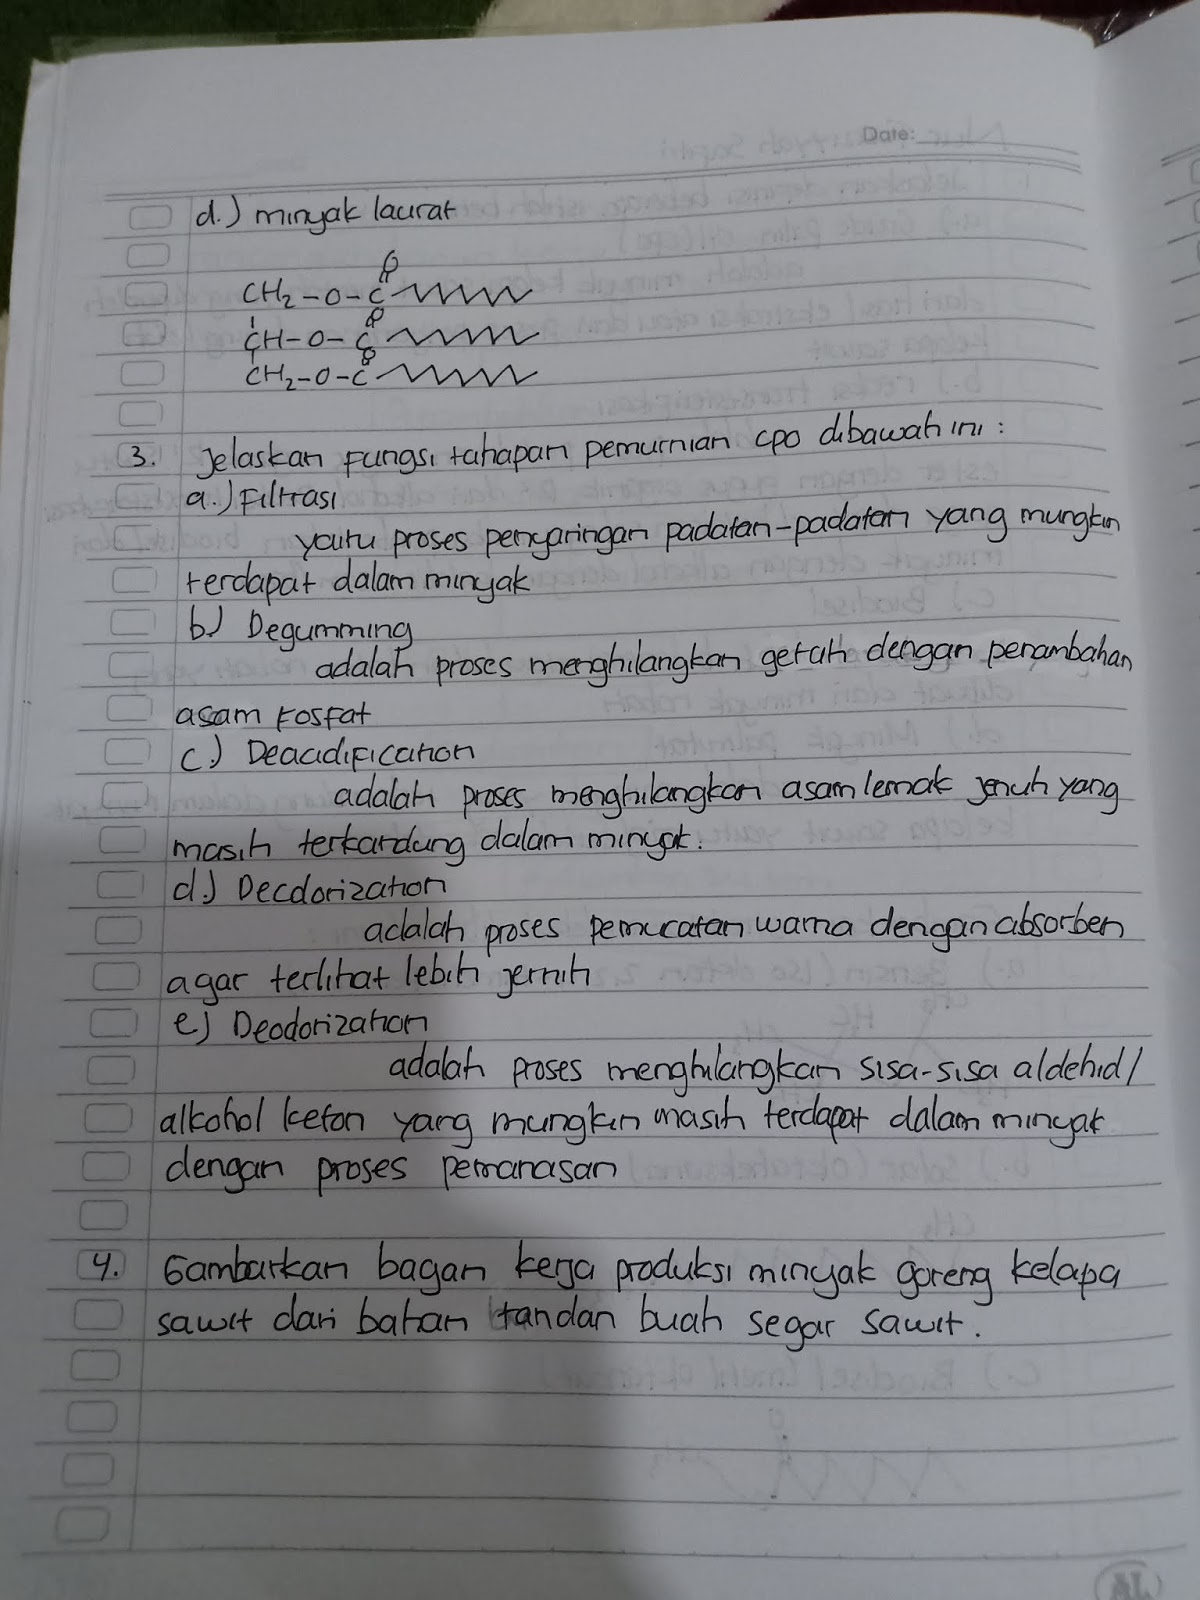 Date:
d.) minyak laurat
O
CH2-O-C
O
CH-O-C
O
CH2-O-C
3. Jelaskan fungsi tahapan pemurnian cpo dibawah ini :
a.) Filtrasi
yaitu proses penyaringan padatan-padatan yang mungkin
terdapat dalam minyak
b) Degumming
adalah proses menghilangkan getah dengan penambahan
asam fosfat
c.) Deacidification
adalah proses menghilangkan asam lemak jenuh yang
masih terkandung dalam minyak.
d.) Decdorization
adalah proses pemucatan warna dengan absorben
agar terlihat lebih jernih
e) Deodorization
adalah proses menghilangkan sisa-sisa aldehid/
alkohol keton yang mungkin masih terdapat dalam minyak
dengan proses pemanasan
4. Gambarkan bagan kerja produksi minyak goreng kelapa
sawit dari bahan tandan buah segar sawit.